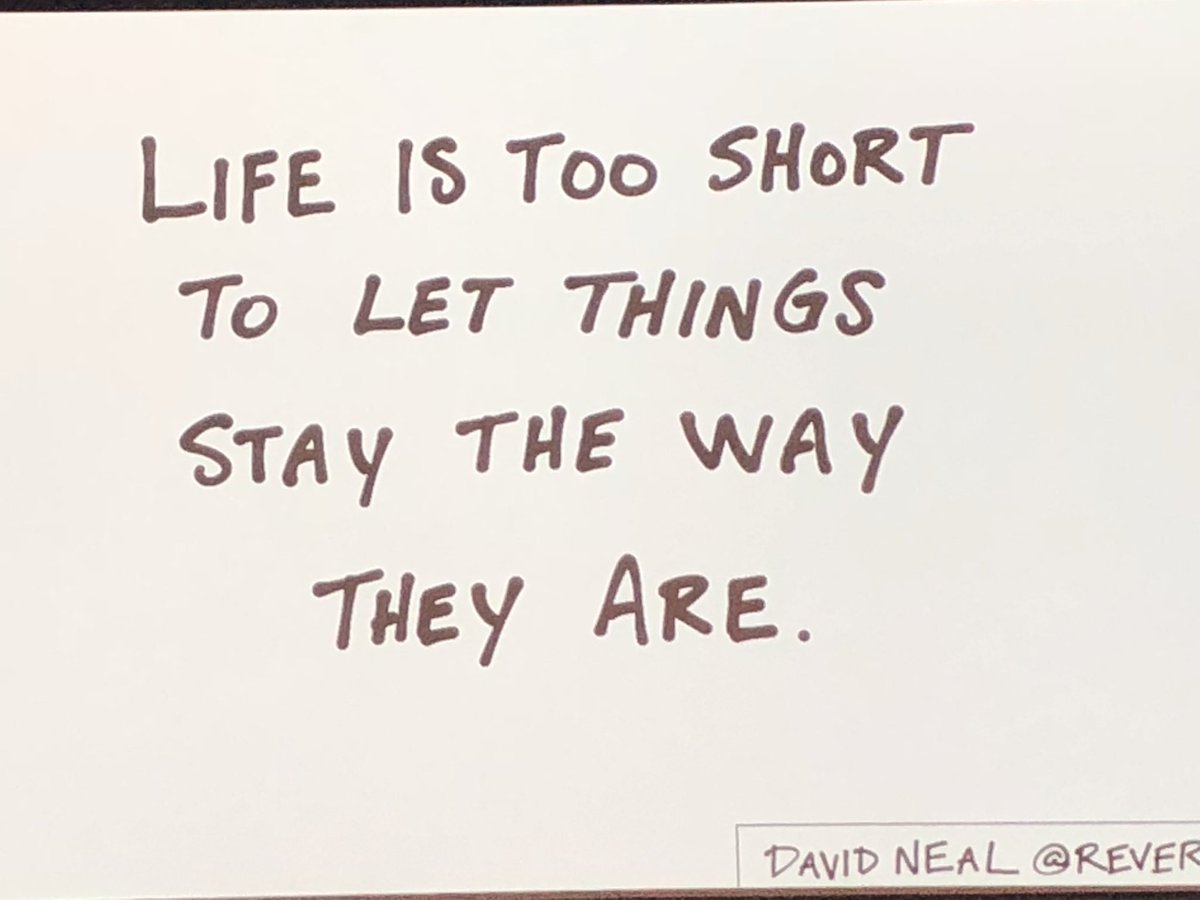 LIFE IS TOO SHORT
TO LET THINGS
STAY THE WAY
THEY ARE.
DAVID NEAL @REVER